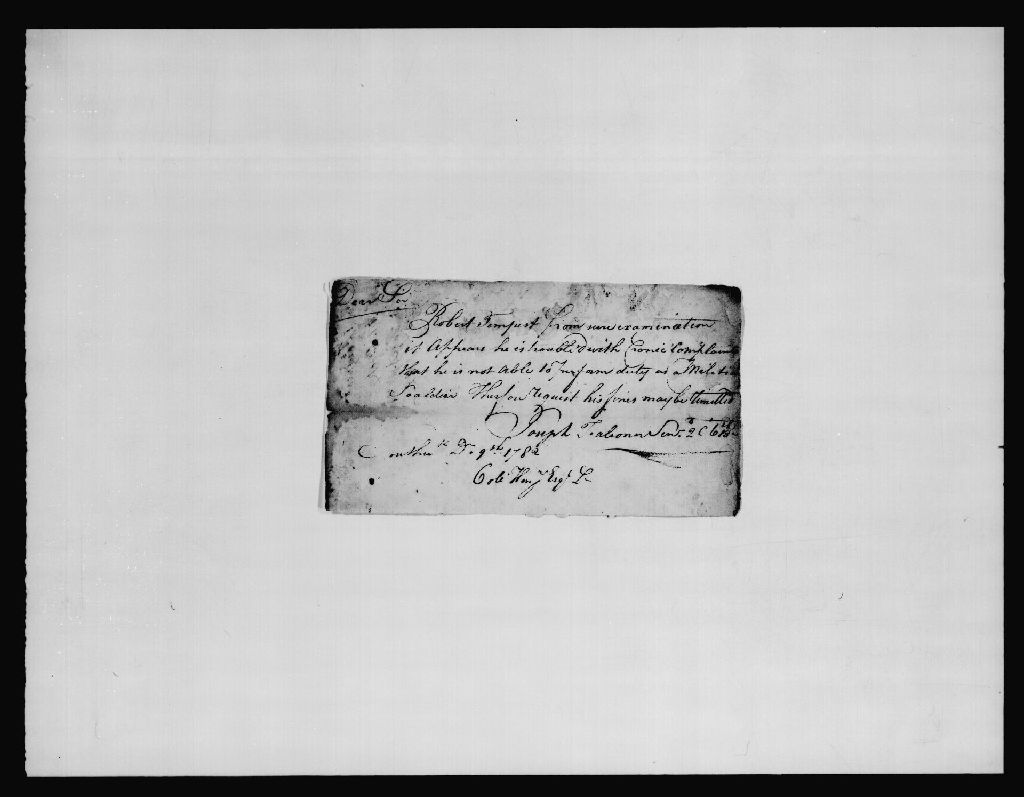 Dear Sir
Robert Tempest from new examination
it Appears he is troubled with Cronic Complain
that he is not Able to Purfam duty as a Militia
Soaldier Thurfou request his fines may be Remitted
Joseph
9th 1782
Colo Hay Esqr